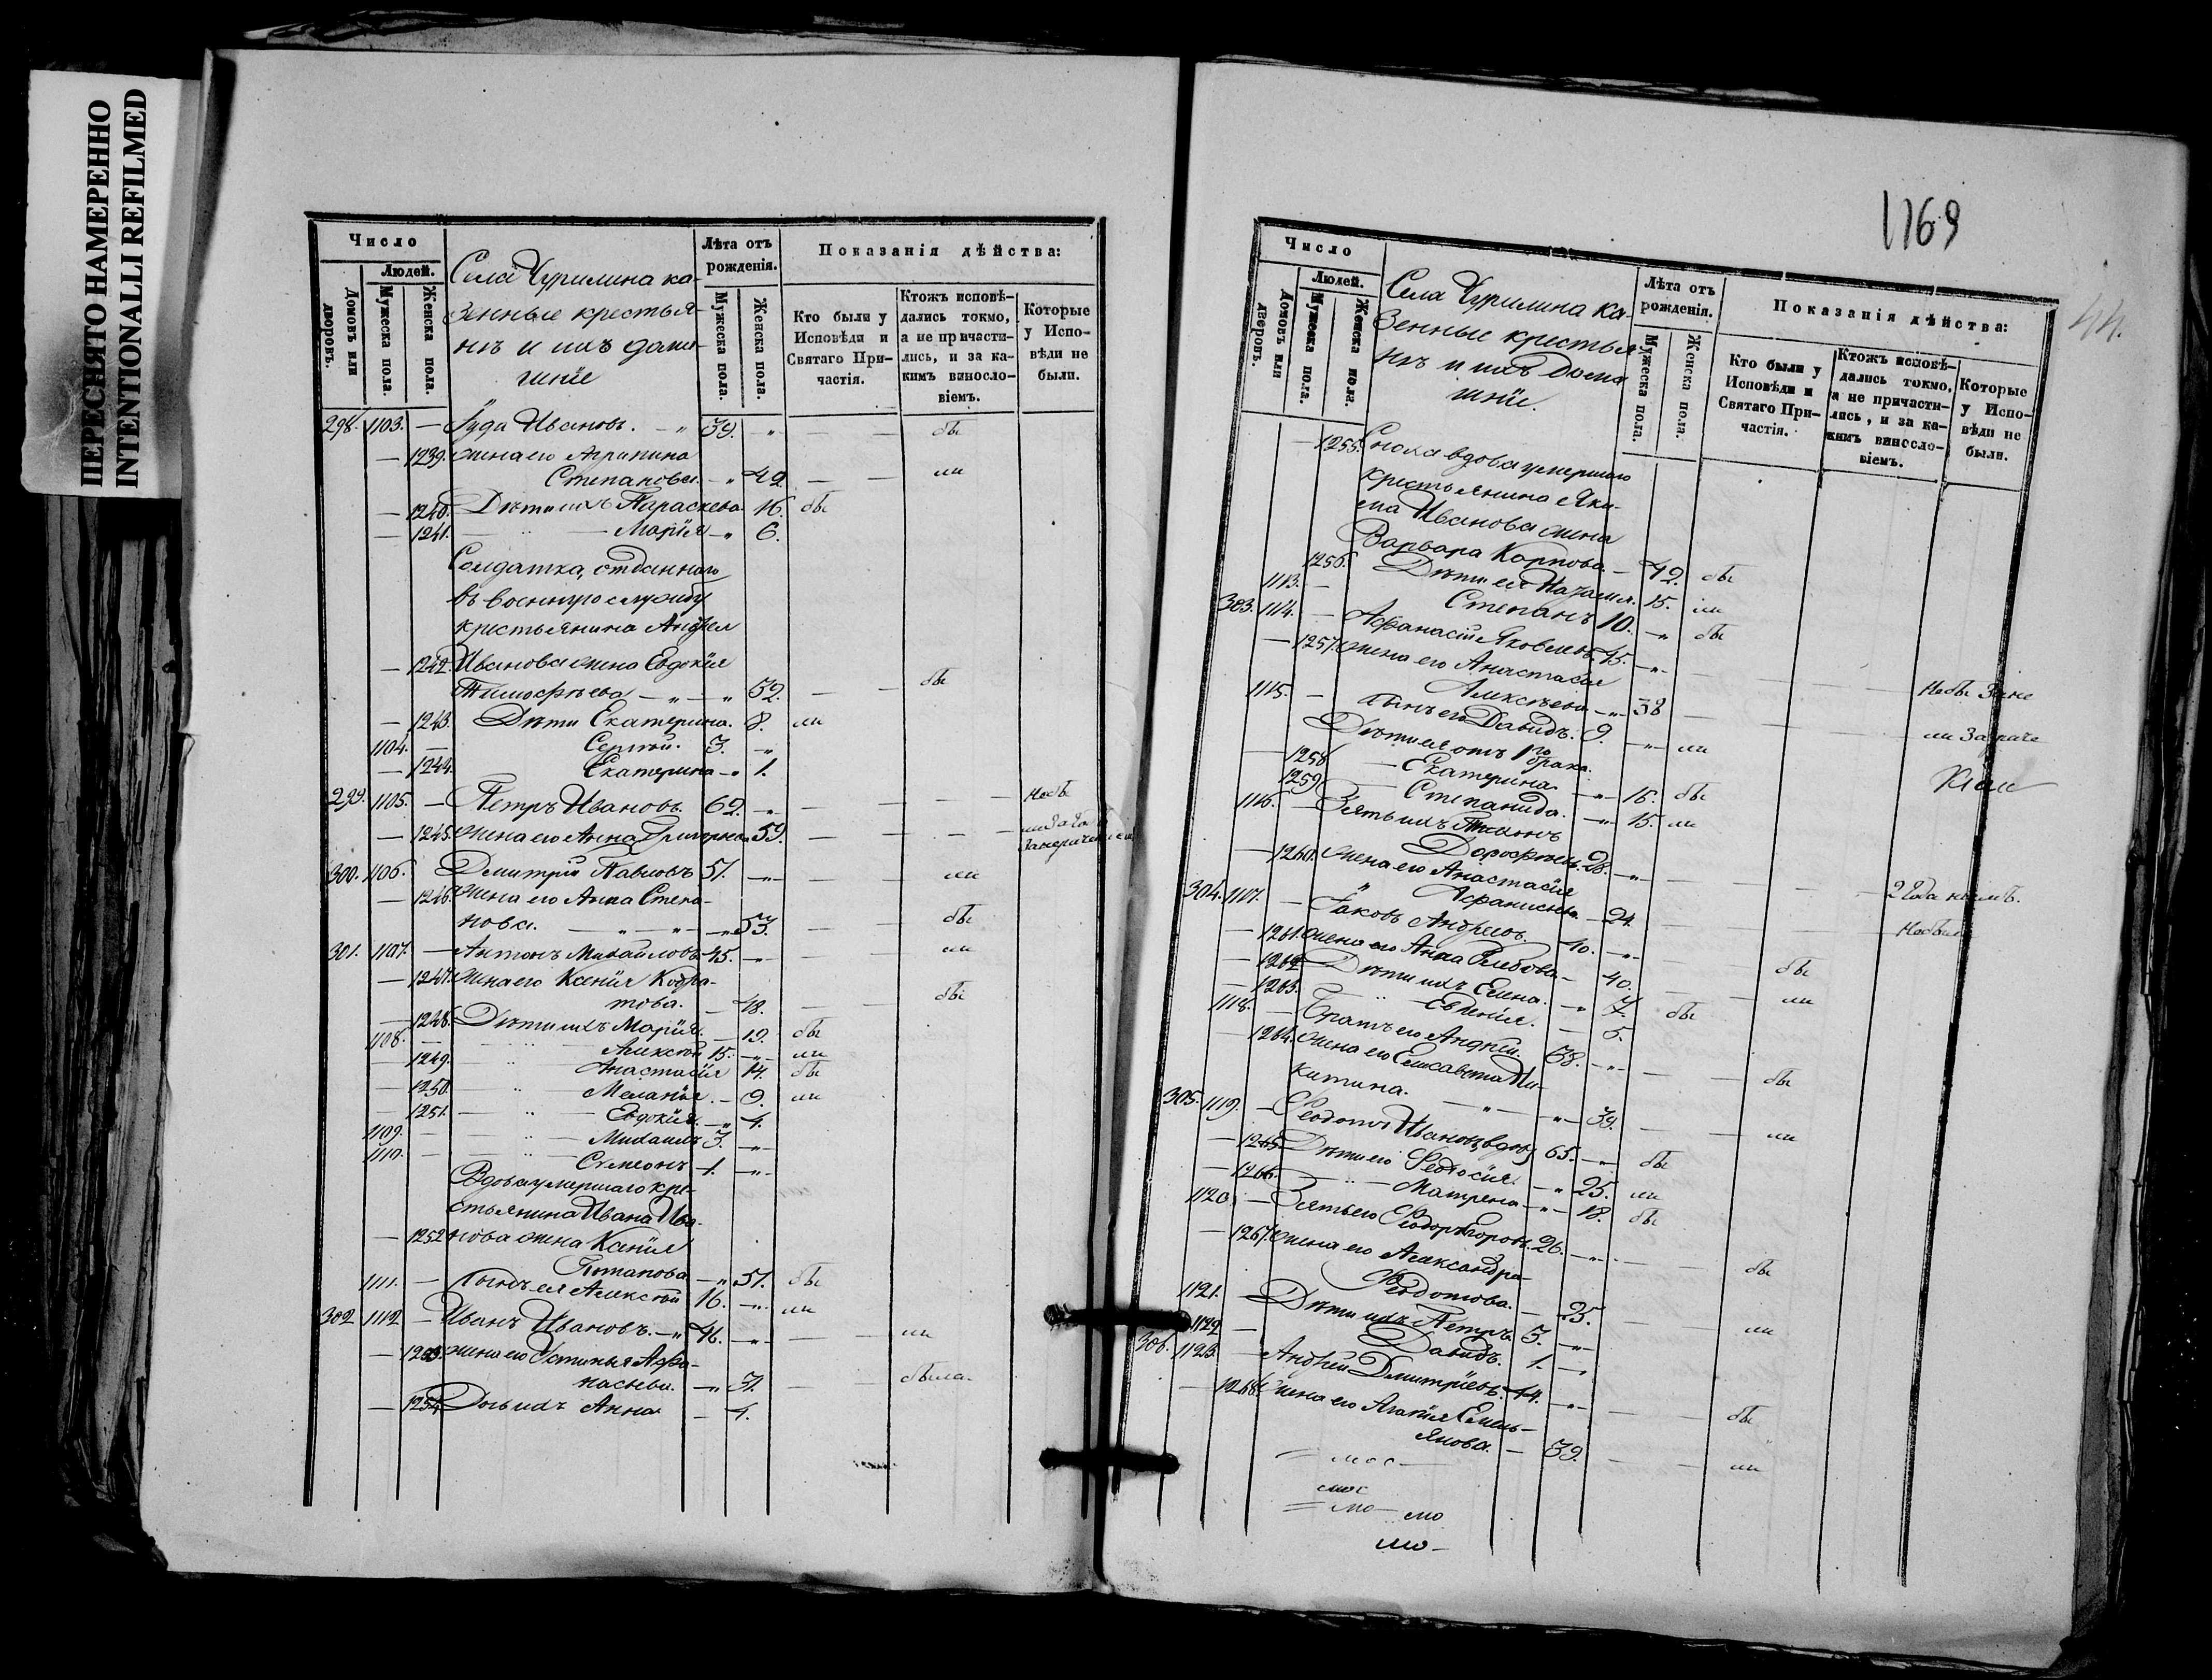 ПЕРЕСНЯТО НАМЕРЕННО
INTENTIONALLI REFILMED
Число
Людей.
Домовъ или дворовъ.
Мужеска пола.
Женска пола.
Села Чурилина ка-
зенные крестья-
нѣ и ихъ дома-
шніе
Лѣта отъ рожденія.
Мужеска пола.
Женска пола.
Показанія дѣйства:
Кто были у Исповѣди и Святаго При-частія.
Ктожъ исповѣ-дались токмо, а не причасти-лись, и за ка-кимъ винosло-віемъ.
Которые у Испо-вѣди не были.
298. 1103. — Іуда Ивановъ. — " 39. " — — бы
— 1239. жена его Агрипина
Степанова. — " 42. — — ли
— 1240. Дѣти ихъ Параскева 16. бы
— 1241. — " — Марія — " 6.
Солдатка, отданнаго
въ военную службу
крестьянина Андрея
— 1242. Иванова жена Евдокія
Тимоѳѣева — " — " 32. — — бы
— 1243. Дѣти Екатерина. 8. ли
1104. — Сергѣй. 3. — "
— 1244. Екатерина — " 1.
299. 1105. — Петръ Ивановъ 62. — " — — — — Небы
— 1245. жена его Анна Григорьева 59. — — — —
300. 1106. Димитрій Павловъ 51. — " — — — ли
— 1246. жена его Анна Степа-
нова. — " — " — " 53. — — бы
301. 1107. — Антонъ Михайловъ 45. — " — — — ли
— 1247. жена его Ксенія Кодра-
това. — 48. — — бы
— 1248. Дѣти ихъ Марія. — 19. бы
1108. — Алексѣй 15. — " — ли
1249. — " — Анастасія 14. бы
— 1250. — " — Меланія. — 9. ли
— 1251. — " — Евдокія. — " 4.
1109. — — " — Михаилъ 3. — " —
1110. — — " — Симеонъ 1. — " —
Вдова умершаго кре-
стьянина Ивана Ива-
— 1252 нова жена Ксенія
Потапова — " 51. бы
1111. — Сынъ ея Алексѣй 16. — " — ли
302 1112 — Иванъ Ивановъ. — " 46. — " — — — ли
— 1253. жена его Устинья Аѳа-
насьева. — " 31. — — была.
— 1254 Дочь ихъ Анна — 4.
1169
44.
Число
Людей.
Домовъ или дворовъ.
Мужеска пола.
Женска пола.
Села Чурилина ка-
зенные крестья-
нѣ и ихъ Дома-
шніе.
Лѣта отъ рожденія.
Мужеска пола.
Женска пола.
Показанія дѣйства:
Кто были у Исповѣди и Святаго При-частія.
Ктожъ исповѣ-дались токмо, а не причасти-лись, и за ка-кимъ винoсло-віемъ.
Которые у Испо-вѣди не были.
— 1255. Сноха вдова умершаго
крестьянина Яки-
ма Иванова жена
Варвара Карпова. — 42. бы
1256. Дѣти ея Наталия. 15. ли
1113. — Степанъ 10. — " бы
303. 1114. — Аѳанасій Яковлевъ. 45. — " —
— 1257. жена его Анастасія
Алексѣева. — " — 38 — — — Небы
1115. — Сынъ его Давидъ. 9. — " — ли
Дѣти ея отъ 1го брака.
— 1258 — Екатерина. — " — 16. бы
1259. — Степанида. — " — 15. ли
1116. — Зять ихъ Тихонъ
Дороѳѣевъ. 28. — " —
— 1260. жена его Анастасія
Аѳанасьева — 24.
304. 1117. — Іаковъ Андреевъ. 40. — " — — — бы
— 1261. жена его Анна Глебова — 40. — — ли
— 1262 Дѣти ихъ Елена. — " 7. бы
— 1263. — " — Евгенія. — 5.
1118. — Братъ его Андрей. 38. — " — — — бы
— 1264. жена его Елисавета Ни-
китина. — " — — " — 39. — — ли
305. 1119. — Ѳеодотъ Ивановъ, вдовъ 65. — " — бы
— 1265. Дѣти его Ѳеодосія. — " 25. ли
— 1266. — " — Матрена — " — 18. бы
1120. — Зять его Ѳеодоръ Егоровъ. 26. — " — — бы
— 1267. жена его Александра
Ѳеодотова. — 25. — — ли
1121. — Дѣти ихъ Петръ 3. — " —
1122 — Давидъ. 1. — "
306. 1123. — Андрей Дмитріевъ. 44. — " — — бы
— 1268. жена его Агапія Емель-
янова. — 39. — — ли